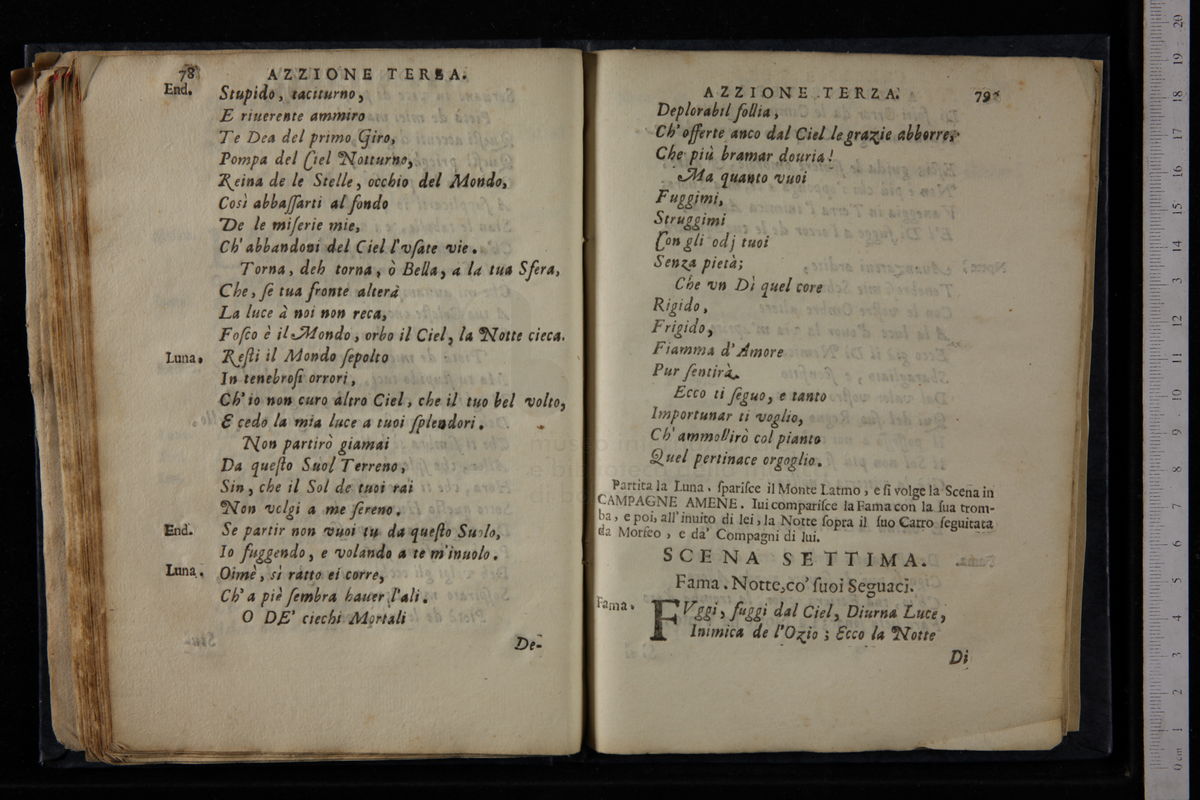 78 AZZIONE TERZA.
End. Stupido, taciturno,
E riuerente ammiro
Te Dea del primo Giro,
Pompa del Ciel Notturno,
Reina de le Stelle, occhio del Mondo,
Così abbaſſarti al fondo
De le miſerie mie,
Ch' abbandoni del Ciel l'vſate vie.
Torna, deh torna, ò Bella, a la tua Sfera,
Che, ſe tua fronte altera
La luce à noi non reca,
Foſco è il Mondo, orbo il Ciel, la Notte cieca.
Luna. Reſti il Mondo ſepolto
In tenebroſi orrori,
Ch' io non curo altro Ciel, che il tuo bel volto,
E cedo la mia luce a tuoi ſplendori.
Non partirò giamai
Da queſto Suol Terreno,
Sin, che il Sol de tuoi rai
Non volgi a me ſereno.
End. Se partir non vuoi tu da queſto Suolo,
Io fuggendo, e volando a te m'inuolo.
Luna. Oimè, sì ratto ei corre,
Ch' a piè ſembra hauer l'ali.
O DE' ciechi Mortali
De-
AZZIONE TERZA. 79
Deplorabil follia,
Ch' offerte anco dal Ciel le grazie abborre,
Che più bramar douria!
Ma quanto vuoi
Fuggimi,
Struggimi
Con gli odj tuoi
Senza pietà;
Che vn Dì quel core
Rigido,
Frigido,
Fiamma d' Amore
Pur ſentirà.
Ecco ti ſeguo, e tanto
Importunar ti voglio,
Ch' ammollirò col pianto
Quel pertinace orgoglio.
Partita la Luna, ſpariſce il Monte Latmo, e ſi volge la Scena in
CAMPAGNE AMENE. Iui compariſce la Fama con la ſua trom-
ba, e poi, all' inuito di lei, la Notte ſopra il ſuo Carro ſeguitata
da Morfeo, e da' Compagni di lui.
SCENA SETTIMA.
Fama. Notte, co' ſuoi Seguaci.
Fama. FVggi, fuggi dal Ciel, Diurna Luce,
Inimica de l'Ozio; Ecco la Notte
Di
0 cm 1 2 3 4 5 6 7 8 9 10 11 12 13 14 15 16 17 18 19 20